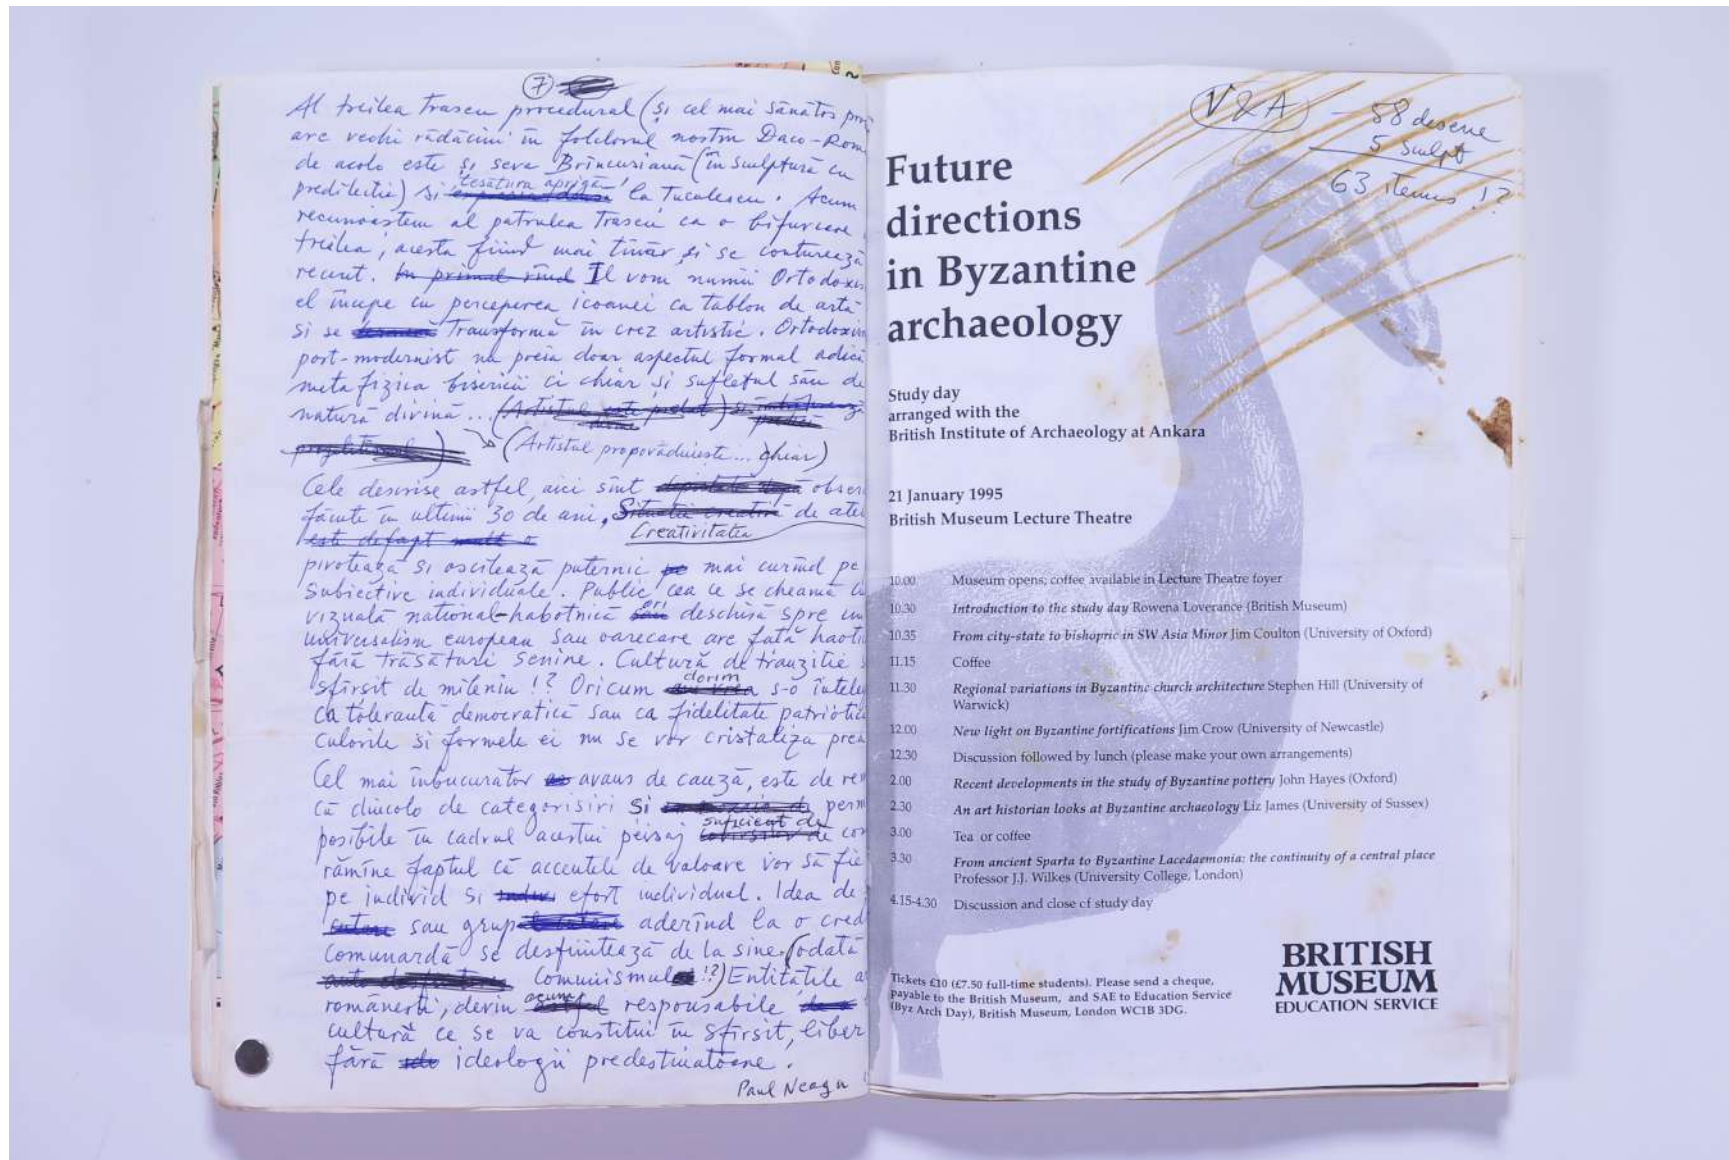 7
Al treilea traseu procedural (și cel mai sănătos
are vechi rădăcini în folclorul nostru Daco-Rom
de acolo este și seva Brîncușiană (în sculptură cu
predilecție) și 'țesătura aprigă' la Țuculescu. Acum
recunoaștem al patrulea traseu ca o bifurcare
treilea, acesta fiind mai tînăr și se conturează
recent. In primul rînd Il vom numii Ortodoxis
el începe cu perceperea icoanei ca tablou de artă
si se transformă în crez artistic. Ortodoxis
post-modernist nu preia doar aspectul formal adică
metafizica bisericii ci chiar și sufletul său de
natură divină... (Artistul este prelat) și
(Artistul propovăduiește... chiar)
Cele descrise astfel, aici sînt obser
făcute în ultimii 30 de ani, Situatia creativă de ate
este defapt mult o Creativitatea
pivotează și oscilează puternic pe mai curînd pe
Subiective individuale. Public cea ce se cheamă cu
vizuală național-habotnică sau ori deschisă spre un
universalism european sau oarecare are față haoti
fără trăsături senine. Cultură de tranziție s
sfîrsit de mileniu !? Oricum dorim s-o înțele
ca toleranță democratică sau ca fidelitate patriotic
Culorile și formele ei nu se vor cristaliza prea
Cel mai înbucurător avans de cauză, este de re
că dincolo de categorisiri și perm
posibile în cadrul acestui peisaj suficient de con
rămîne faptul că accentele de valoare vor să fie
pe individ si efort individual. Idea de
sau grup aderînd la o cred
comunardă se desființează de la sine (odată
Comunismul !?) Entitățile a
românești, devin acum responsabile
cultură ce se va constitui în sfîrsit, liber
fără ideologii predestinatoare.
Paul Neagu
V&A - 58 desene
5 sculpt
63 items !?
Future
directions
in Byzantine
archaeology
Study day
arranged with the
British Institute of Archaeology at Ankara
21 January 1995
British Museum Lecture Theatre
10.00 Museum opens; coffee available in Lecture Theatre foyer
10.30 Introduction to the study day Rowena Loverance (British Museum)
10.35 From city-state to bishopric in SW Asia Minor Jim Coulton (University of Oxford)
11.15 Coffee
11.30 Regional variations in Byzantine church architecture Stephen Hill (University of
Warwick)
12.00 New light on Byzantine fortifications Jim Crow (University of Newcastle)
12.30 Discussion followed by lunch (please make your own arrangements)
2.00 Recent developments in the study of Byzantine pottery John Hayes (Oxford)
2.30 An art historian looks at Byzantine archaeology Liz James (University of Sussex)
3.00 Tea or coffee
3.30 From ancient Sparta to Byzantine Lacedaemonia: the continuity of a central place
Professor J.J. Wilkes (University College, London)
4.15-4.30 Discussion and close of study day
Tickets £10 (£7.50 full-time students). Please send a cheque,
payable to the British Museum, and SAE to Education Service
(Byz Arch Day), British Museum, London WC1B 3DG.
BRITISH
MUSEUM
EDUCATION SERVICE